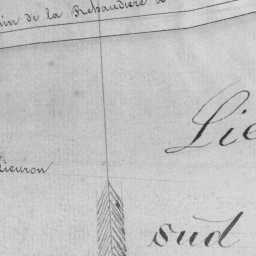 min de la Rebaudière à
Lie
Lieuron
sud